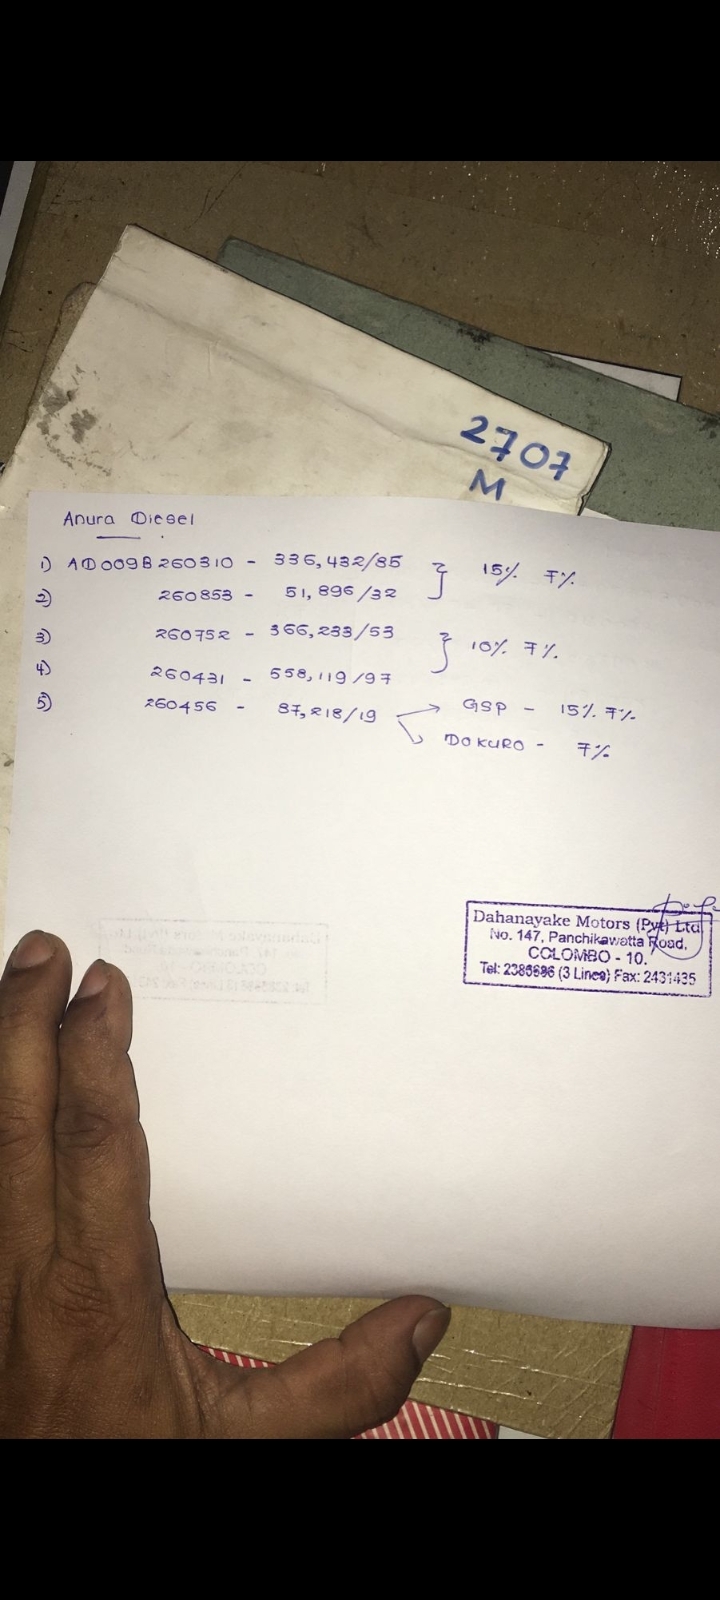 2707
M
Anura Diesel
1) AD009B260310 - 336,432/85 } 15% 7%
2) 260853 - 51,896/32
3) 260752 - 366,233/53 } 10% 7%.
4) 260431 - 558,119/97
5) 260456 - 87,218/19 → GSP - 15%. 7%
DOKURO - 7%
Dahanayake Motors (Pvt) Ltd
No. 147, Panchikawatta Road,
COLOMBO - 10.
Tel: 2386696 (3 Lines) Fax: 2431435